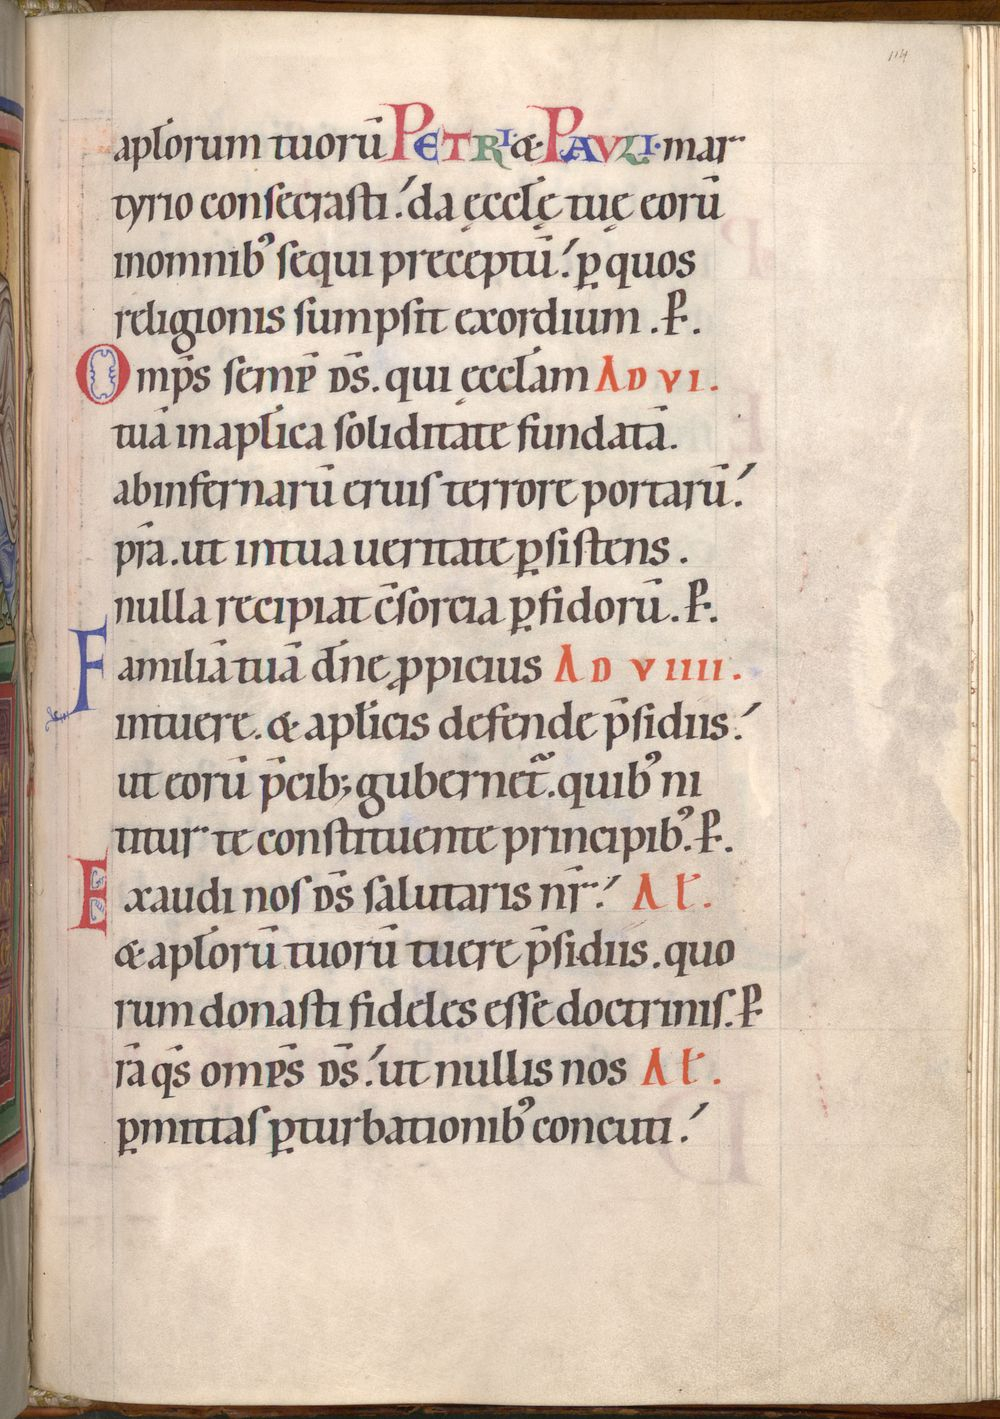 114
apl̄orum tuorū PETRI & PAULI· mar
tyrio consecrasti. da ęccl̄ę tuę eorū
inomnib' sequi preceptū. ꝑ quos
religionis sumpsit exordium. P̄.
Omp̄s semp̄ ds̄. qui ęccl̄am AD VI.
tuā inapl̄ica soliditate fundatā.
abinfernarū eruis terrore portarū.
pr̄a. ut intua ueritate ꝑsistens.
nulla recipiat c̄sorcia ꝑfidorū. P̄.
Familiā tuā dn̄e ꝓpicius AD VIIII.
intuere. & apl̄icis defende p̄sidiis.
ut eorū p̄cib; gubernet̄. quib' ni
titur te constituente principib'. P̄.
Exaudi nos ds̄ salutaris nr̄. Al̄.
& apl̄orū tuorū tuere p̄sidiis. quo
rum donasti fideles esse doctrinis. P̄
r̄a qs̄ omps̄ ds̄. ut nullis nos Al̄.
ꝑmittas ꝑturbationib' concuti.